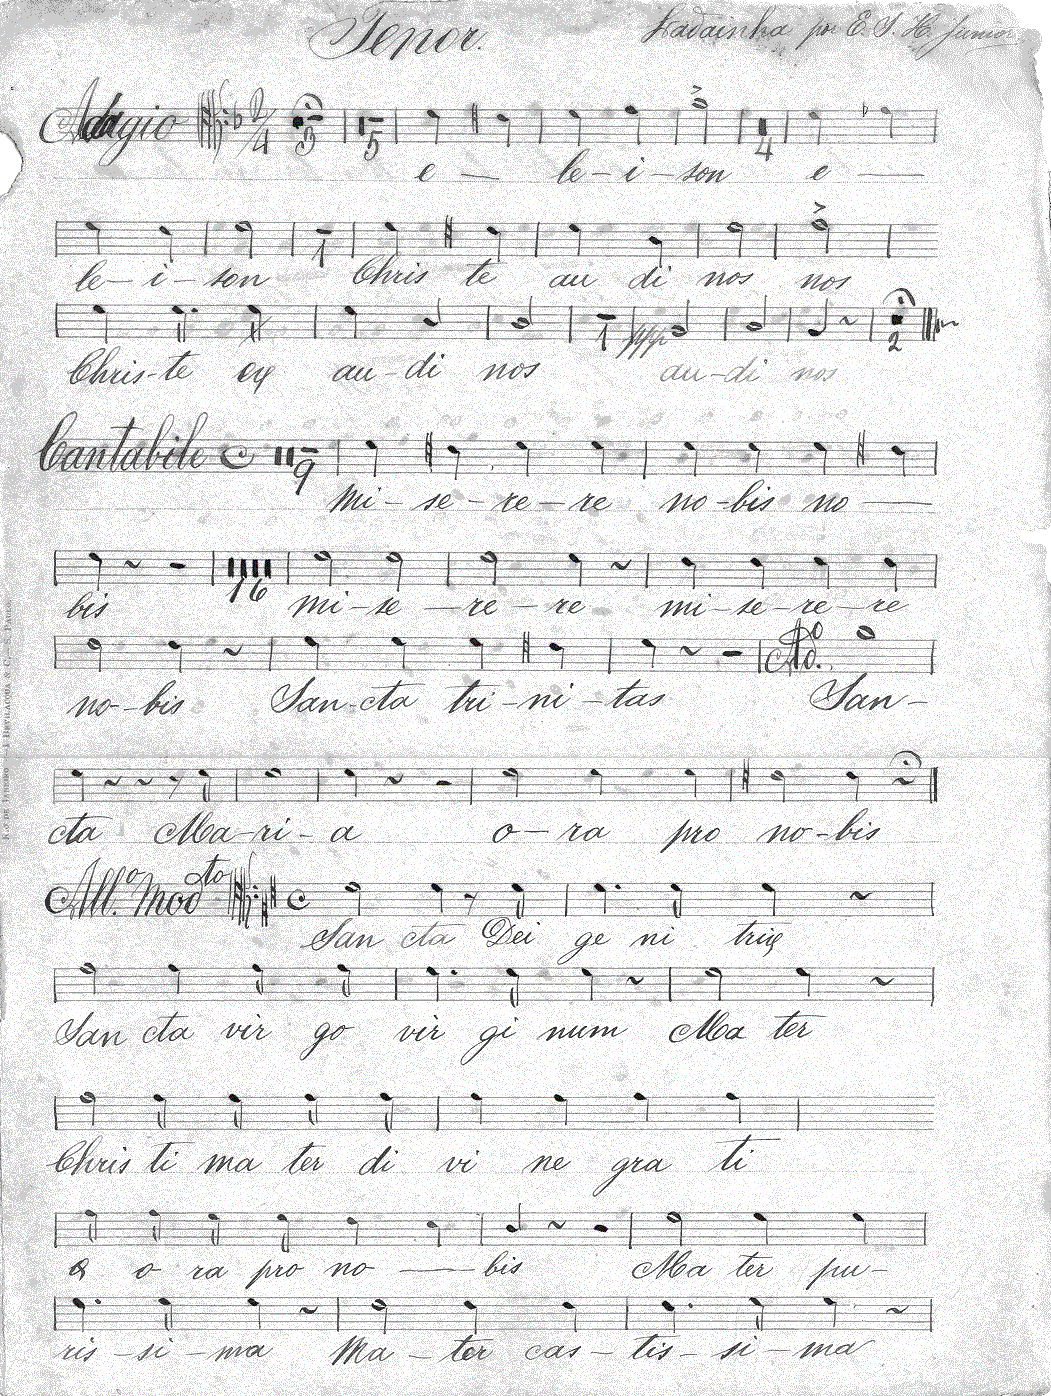 Tenor.
Ladainha por E. S. H. Junior
Adagio 2/4 3 5 4
e — le - i - son e —
1
le - i - son Chris te au di nos nos
1 ppp 2
Chris - te ex au - di nos au - di nos
Cantabile C 9
Mi - se - re - re no - bis no —
16
bis mi - se - re - re mi - se - re - re
Ado.
no - bis San - cta tri - ni - tas San -
cta Ma - ri - a o - ra pro no - bis
All.o Modto C
San cta Dei ge ni trix
San cta vir go vir gi num Ma ter
Chris ti ma ter di vi ne gra ti
a o ra pro no — bis Ma ter pu -
ris - si - ma Ma - ter cas - tis - si - ma